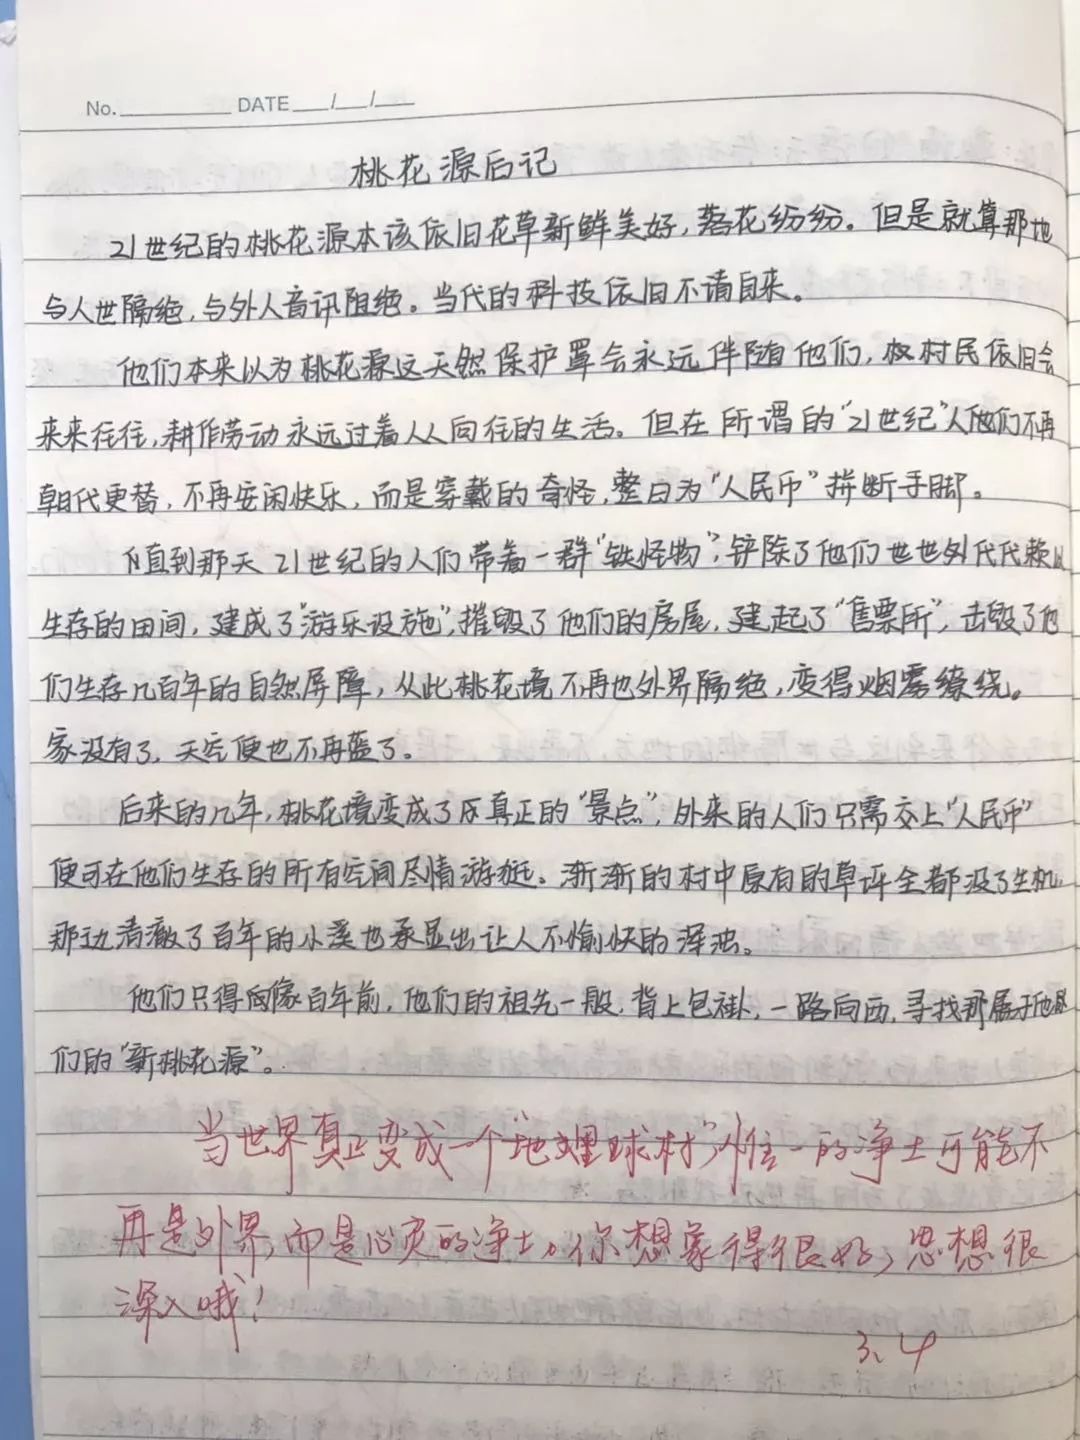 No. DATE / /
桃花源后记
21世纪的桃花源本该依旧花草新鲜美好,落花纷纷。但是就算那地
与人世隔绝,与外人音讯阻绝。当代的科技依旧不请自来。
他们本来以为桃花源这天然保护罩会永远伴随他们,村民依旧会
来来往往,耕作劳动永远过着人人向往的生活。但在所谓的“21世纪”人他们不再
朝代更替,不再安闲快乐,而是穿戴的奇怪,整日为“人民币”拼断手脚。
直到那天21世纪的人们带着一群“铁怪物”,铲除了他们世世代代赖以
生存的田间,建成了“游乐设施”,摧毁了他们的房屋,建起了“售票所”,击毁了他
们生存几百年的自然屏障,从此桃花境不再也外界隔绝,变得烟雾缭绕。
家没有了,天空便也不再蓝了。
后来的几年,桃花境变成了真正的“景点”,外来的人们只需交上“人民币”
便可在他们生存的所有空间尽情游逛。渐渐的村中原有的草坪全都没了生机,
那边清澈了百年的小溪也显出让人不愉快的浑浊。
他们只得像百年前,他们的祖先一般,背上包袱,一路向西,寻找那属于他
们的“新桃花源”。
当世界真正变成一个“地球村”,惟一的净土可能不
再是外界,而是心灵的净土。你想象得很好,思想很
深入哦!
3.4